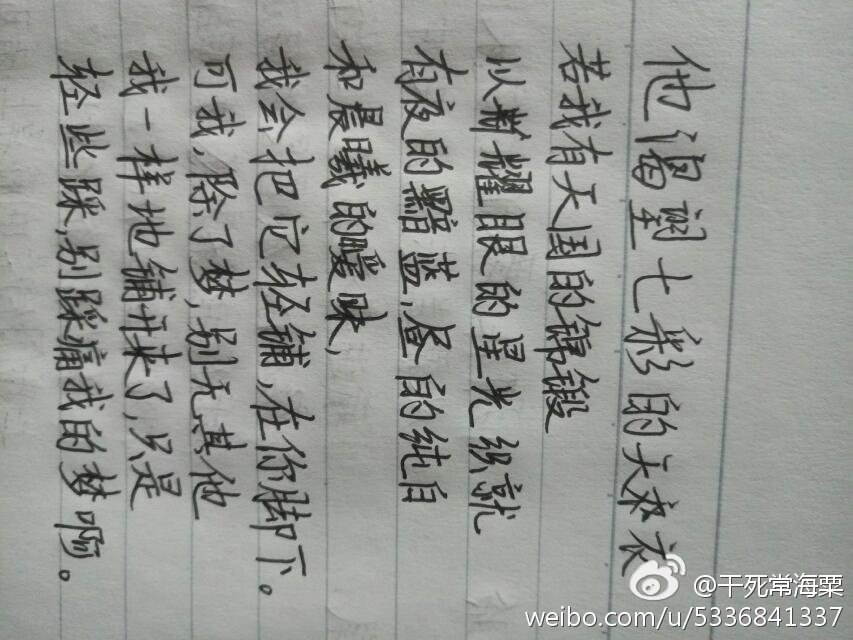 他渴望七彩的天衣
若我有天国的锦缎
以耀眼的星光织就
有夜的黯蓝,昼的纯白
和晨曦的暧昧,
我会把它轻铺,在你脚下。
可我,除了梦,别无其他
我一样地铺开来了,只是
轻些踩,别踩痛我的梦啊。
@干死常海粟
weibo.com/u/5336841337